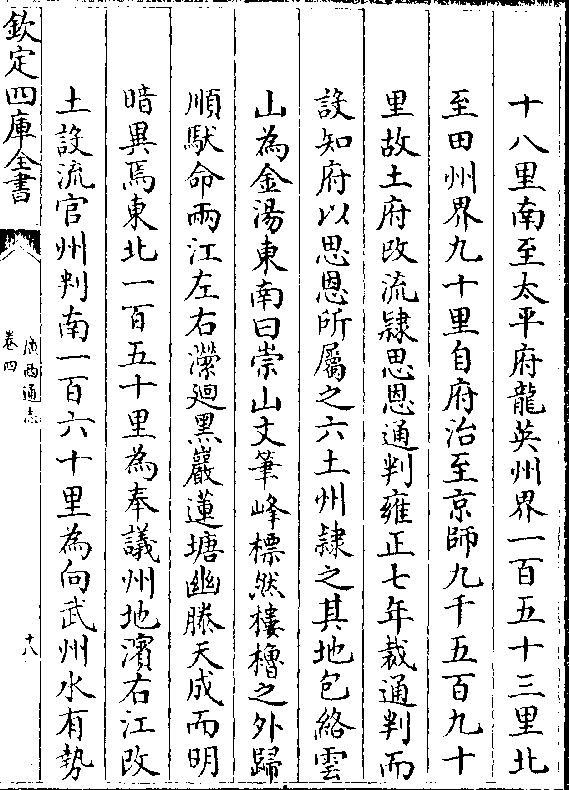 十八里南至太平府龍英州界一百五十三里北
至田州界九十里自府治至京師九千五百九十
里故土府改流隷思恩通判雍正七年裁通判而
設知府以思恩所屬之六土州隷之其地包絡雲
山為金湯東南曰崇山文筆峰標然樓櫓之外歸
順馱命兩江左右瀠廻黑巖蓮塘幽勝天成而明
暗異焉東北一百五十里為奉議州地濱右江改
土設流官州判南一百六十里為向武州水有勢
欽定四庫全書
廣西通志
卷四
十八